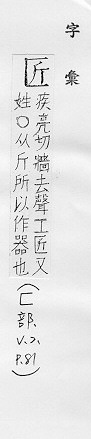 字彙
匠 疾亮切牆去聲工匠又
姓○从斤所以作器也
(匚部、V.2, P.81)